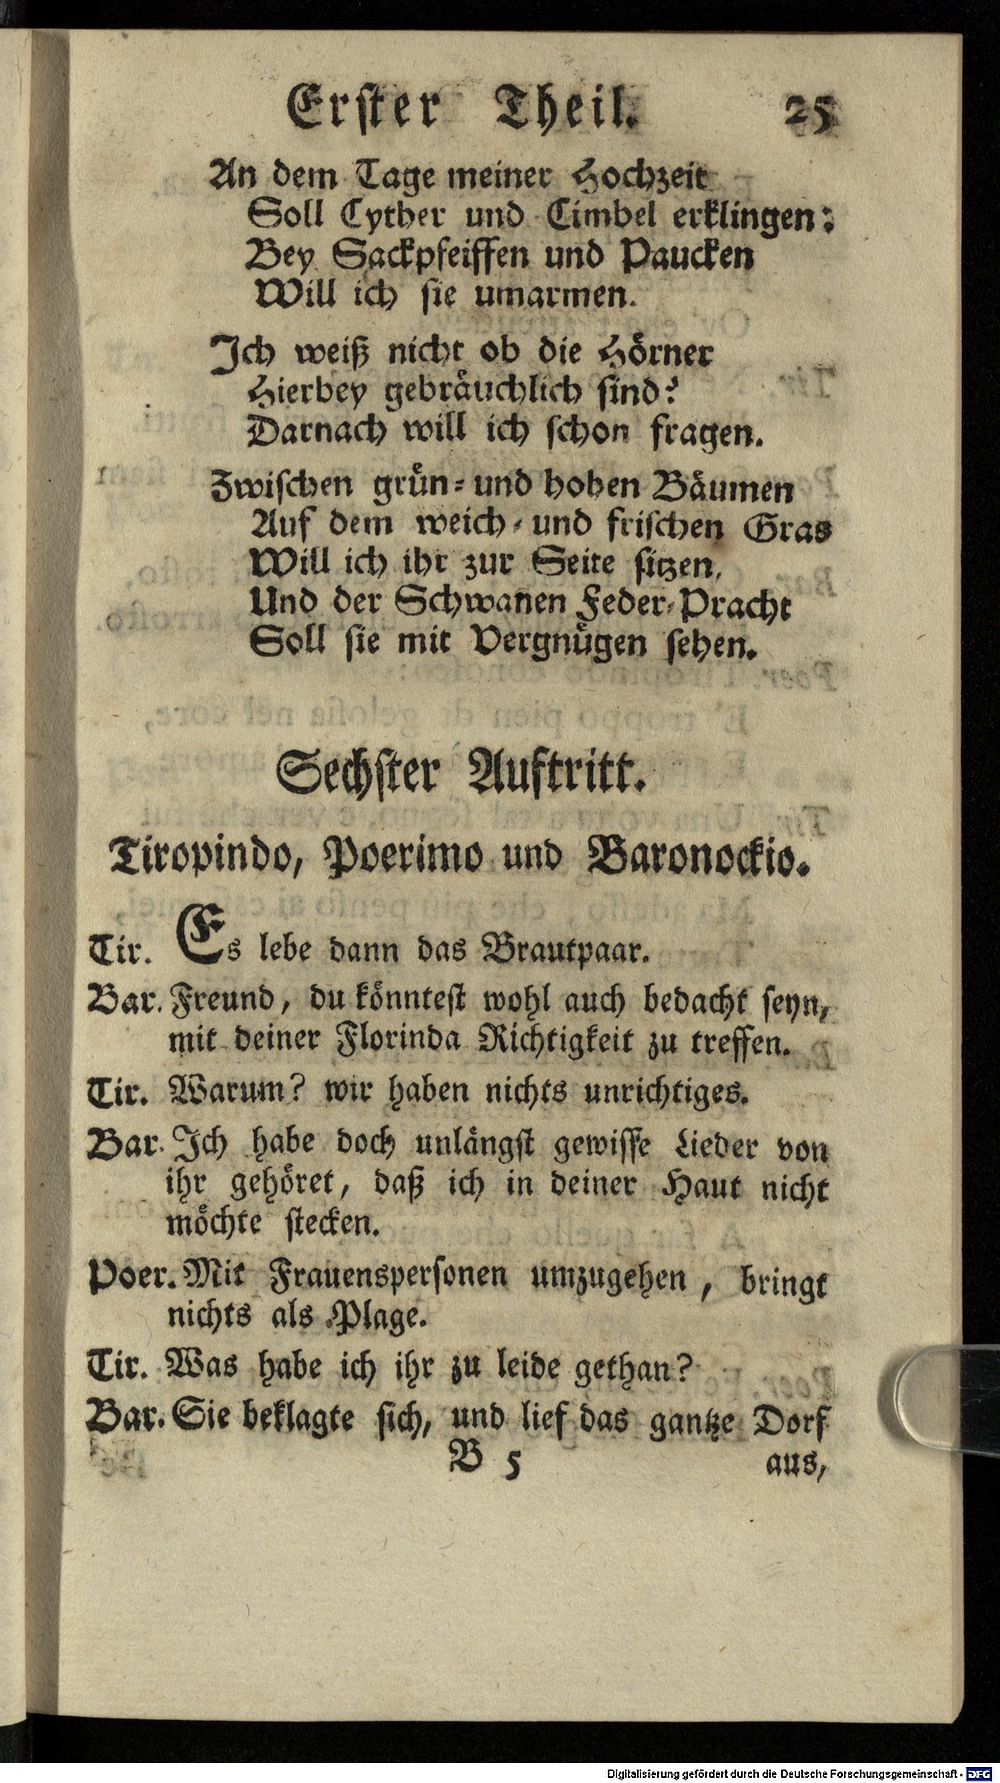 Erster Theil. 25
An dem Tage meiner Hochzeit
Soll Cyther und Cimbel erklingen:
Bey Sackpfeiffen und Paucken
Will ich sie umarmen.
Ich weiß nicht ob die Hörner
Hierbey gebräuchlich sind?
Darnach will ich schon fragen.
Zwischen grün- und hohen Bäumen
Auf dem weich- und frischen Gras
Will ich ihr zur Seite sitzen,
Und der Schwanen Feder-Pracht
Soll sie mit Vergnügen sehen.
Sechster Auftritt.
Tiropindo, Poerimo und Baronockio.
Tir. Es lebe dann das Brautpaar.
Bar. Freund, du könntest wohl auch bedacht seyn,
mit deiner Florinda Richtigkeit zu treffen.
Tir. Warum? wir haben nichts unrichtiges.
Bar. Ich habe doch unlängst gewisse Lieder von
ihr gehöret, daß ich in deiner Haut nicht
möchte stecken.
Poer. Mit Frauenspersonen umzugehen, bringt
nichts als Plage.
Tir. Was habe ich ihr zu leide gethan?
Bar. Sie beklagte sich, und lief das gantze Dorf
B 5 aus,
Digitalisierung gefördert durch die Deutsche Forschungsgemeinschaft - DFG